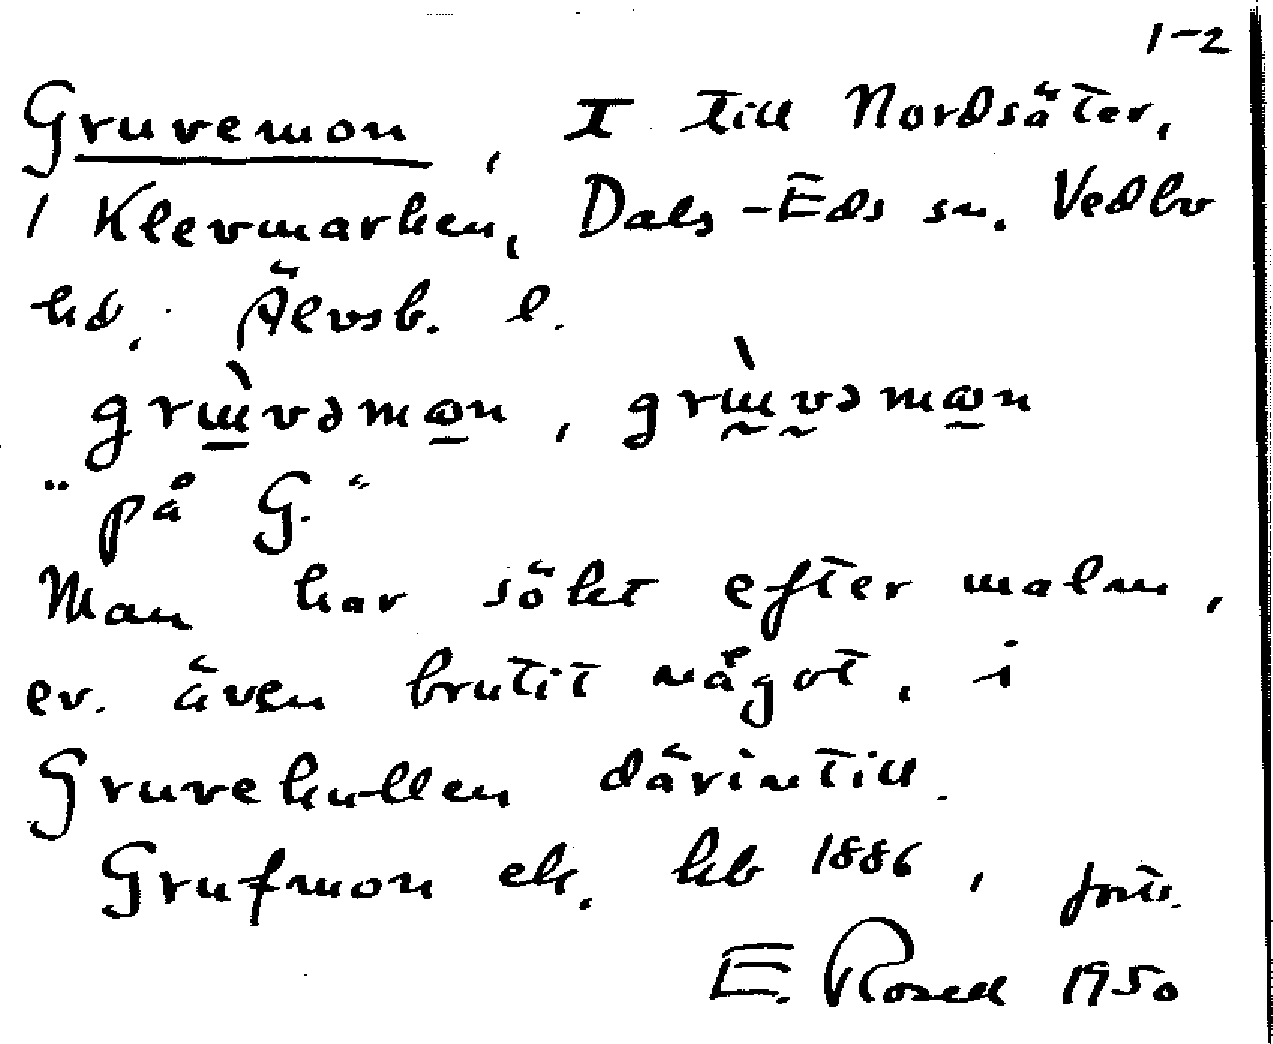 1-2
Gruvemon, I till Nordsäter,
1 Klevmarken, Dals-Eds sn. Vedbo
hd, Älvsb. l.
grɯ̀vəmɷn, grɯ̀vəmɷn
"på G."
Man har sökt efter malm,
ev. även brutit något, i
Gruvekullen därintill.
Grufmon ek. kb 1886, forts.
E. Rosell 1950